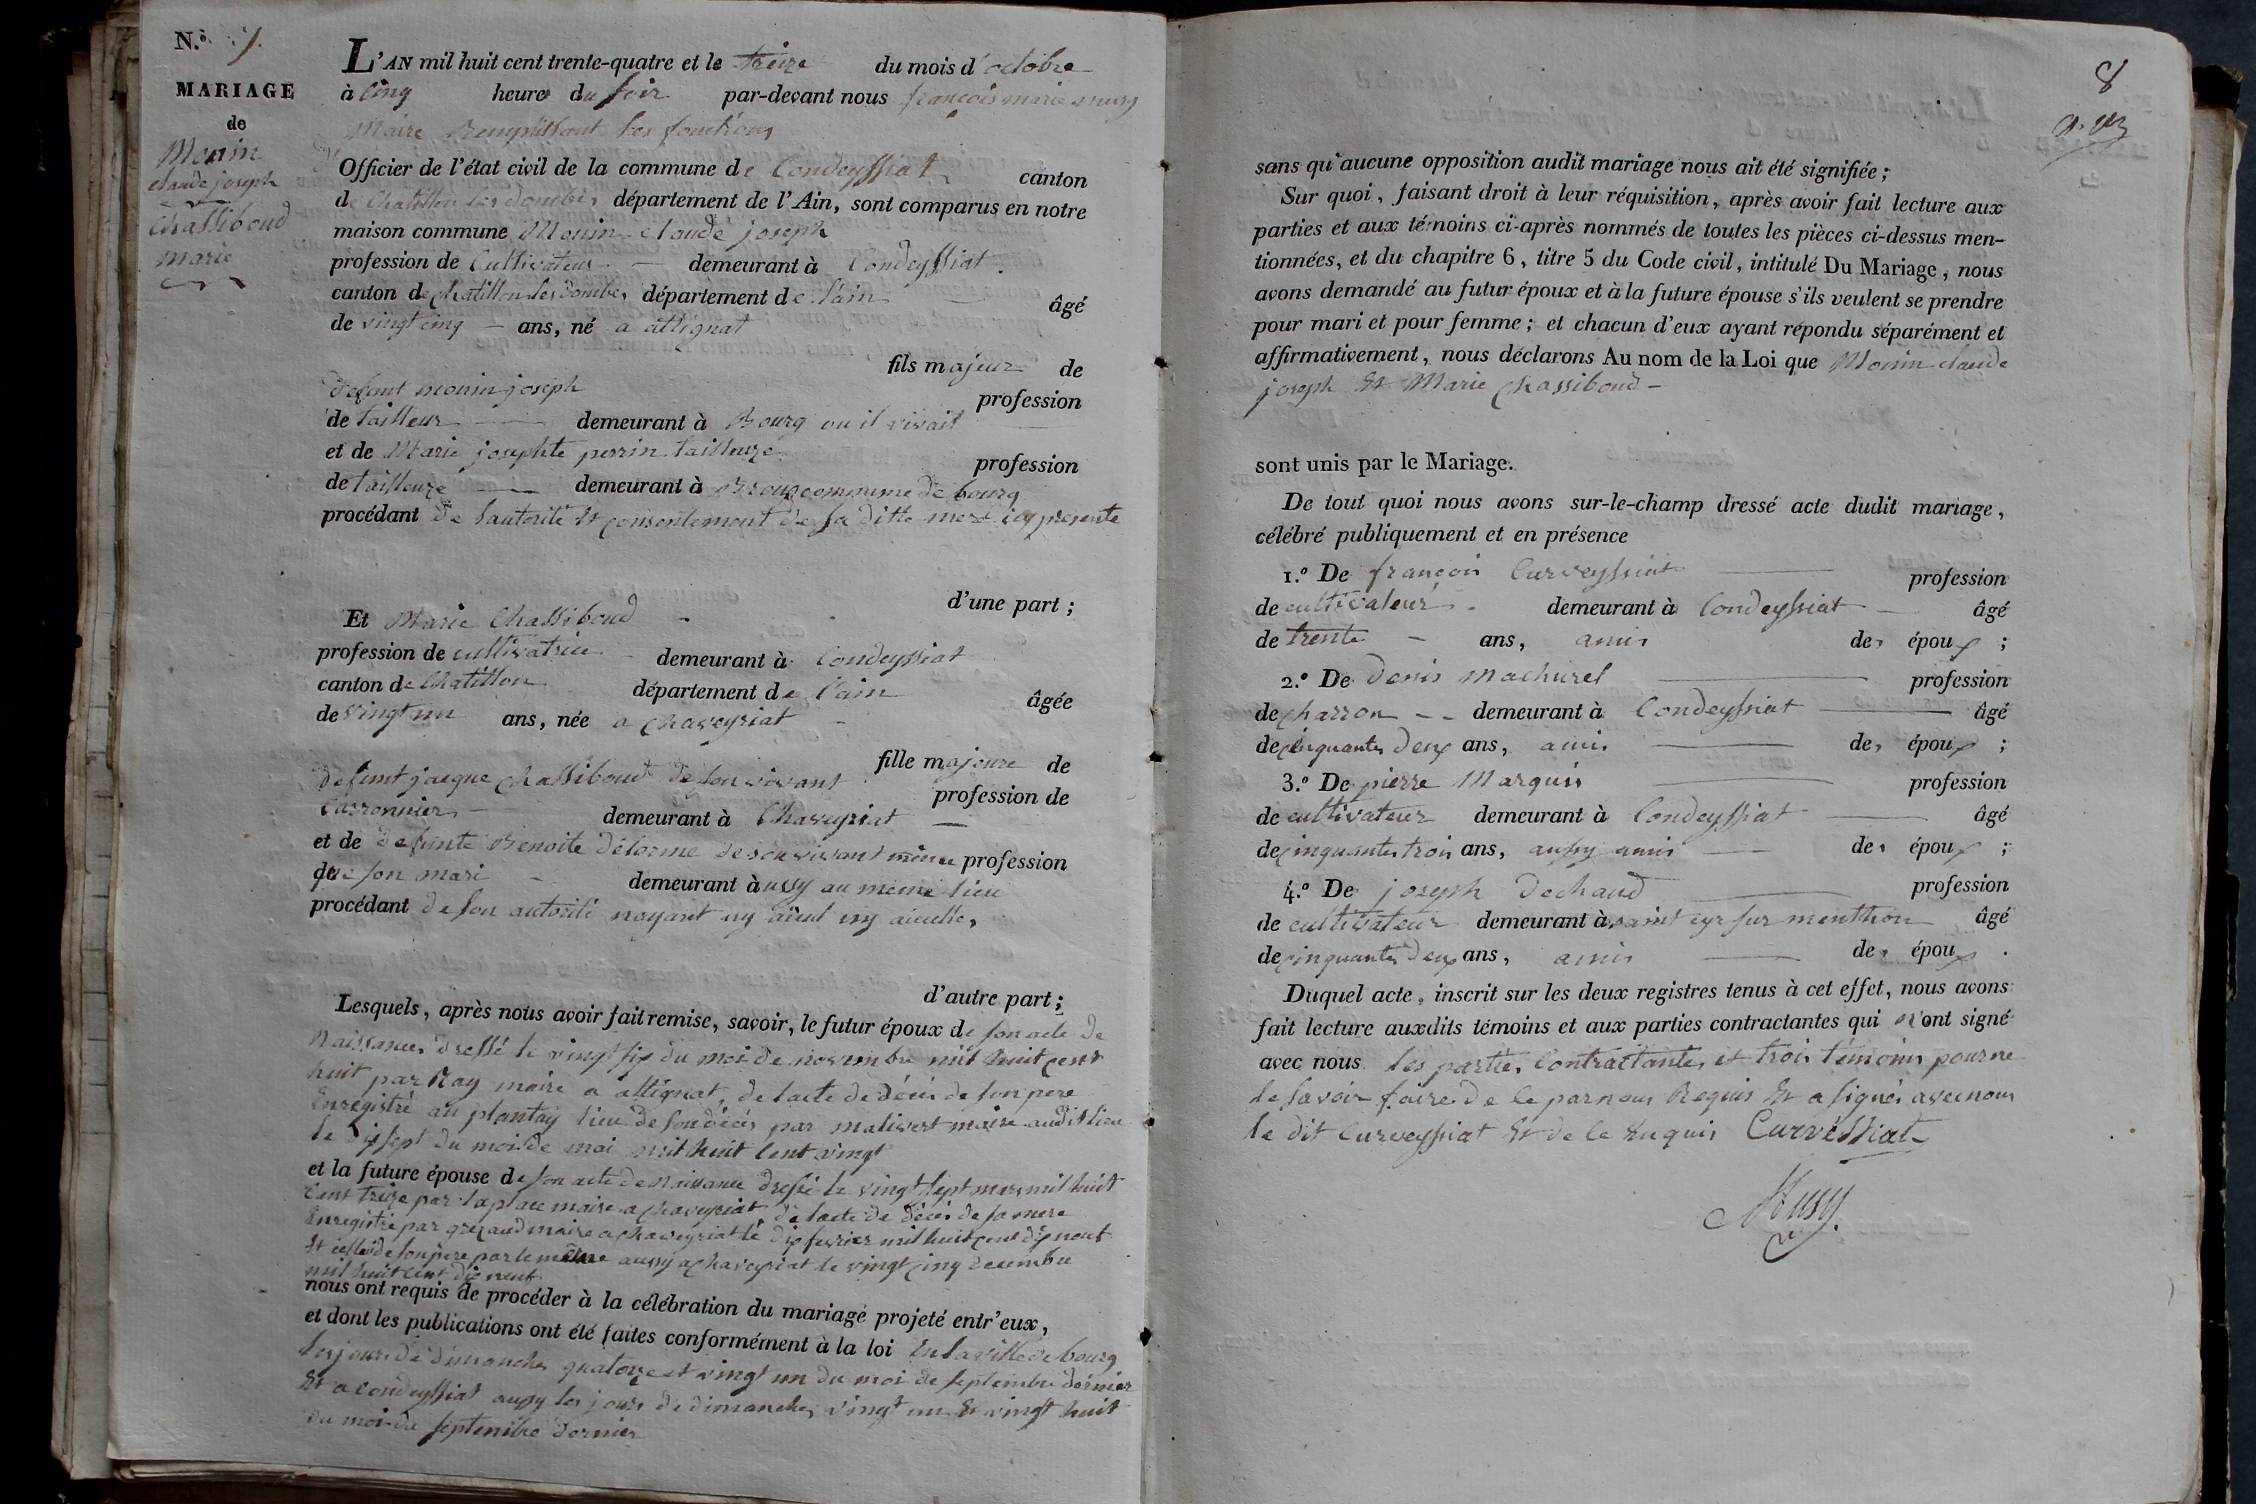 N.º 7.
MARIAGE
de
Monin
claude joseph
Chassiboud
marie
L'AN mil huit cent trente-quatre et le treize du mois d'octobre
à cinq heures du soir par-devant nous françois marie musy
Maire Remplissant les fonctions
Officier de l'état civil de la commune de Condeyssiat canton
de Chatillon les dombes département de l'Ain, sont comparus en notre
maison commune Monin claude joseph
profession de Cultivateur demeurant à Condeyssiat.
canton de chatillon les dombes département de l'ain âgé
de vingt cinq ans, né a attignat
fils majeur de
defunt monin joseph profession
de tailleur demeurant à Bourg ou il vivait
et de Marie josephte perrin tailleuze profession
de tailleuze demeurant à Brouz commune de bourg
procédant de lautorité et consentement de sa ditte mere icy presente
d'une part ;
Et Marie Chassiboud
profession de cultivatrice demeurant à Condeyssiat
canton de Chatillon département de l'ain âgée
de vingt un ans, née a chaveyriat
fille majeure de
defunt jacque chassiboud de son vivant profession de
Carronnier demeurant à Chaveyriat
et de defunte Benoite délorme de son vivant même profession
que son mari demeurant àussy au même lieu
procédant de son autorité nayant ny aieul ny aieulle,
d'autre part ;
Lesquels, après nous avoir fait remise, savoir, le futur époux de son acte de
Naissance dressé le vingt six du moi de novembre mil huit cent
huit par Ray maire a attignat, de lacte de décés de son pere
Enregistré au plantay lieu de son décés par malivert maire audit lieu
le dix sept du moi de mai mil huit cent vingt
et la future épouse de son acte de naissance dressé le vingt sept mars mil huit
cent treize par laplace maire a chaveyriat de lacte de décés de sa mere
Enregistré par grezaud maire a chaveyriat le dix fevrier mil huit cent dix neuf
Et celle de son pere par le même aussy a chaveyriat le vingt cinq decembre
mil huit cent dix neuf
nous ont requis de procéder à la célébration du mariage projeté entr'eux,
et dont les publications ont été faites conformément à la loi En la ville de bourg
les jours de dimanches quatorze et vingt un du moi de septembre dernier
Et a condeyssiat aussy les jours de dimanches vingt un Et vingt huit
du moi de septembre dernier
8
sans qu'aucune opposition audit mariage nous ait été signifiée ;
Sur quoi, faisant droit à leur réquisition, après avoir fait lecture aux
parties et aux témoins ci-après nommés de toutes les pièces ci-dessus men-
tionnées, et du chapitre 6, titre 5 du Code civil, intitulé Du Mariage, nous
avons demandé au futur époux et à la future épouse s'ils veulent se prendre
pour mari et pour femme ; et chacun d'eux ayant répondu séparément et
affirmativement, nous déclarons Au nom de la Loi que Monin claude
joseph Et Marie Chassiboud
sont unis par le Mariage.
De tout quoi nous avons sur-le-champ dressé acte dudit mariage,
célébré publiquement et en présence
1.º De françois Curveyssiat profession
de cultivateur demeurant à Condeyssiat âgé
de trente ans, amis des époux ;
2.º De Denis Machurel profession
de charron demeurant à Condeyssiat âgé
de cinquante deux ans, amis des époux ;
3.º De pierre Marquis profession
de cultivateur demeurant à Condeyssiat âgé
de cinquante trois ans, aussy amis des époux ;
4.º De joseph Dechaud profession
de cultivateur demeurant à saint cyr sur menthon âgé
de cinquante deux ans, amis des époux .
Duquel acte, inscrit sur les deux registres tenus à cet effet, nous avons
fait lecture auxdits témoins et aux parties contractantes qui n'ont signé
avec nous les parties Contractantes et trois témoins pour ne
le savoir faire de le par nous Requis Et a signés avec nous
le dit Curveyssiat Et de le Enquis Curvéssiat
Musy